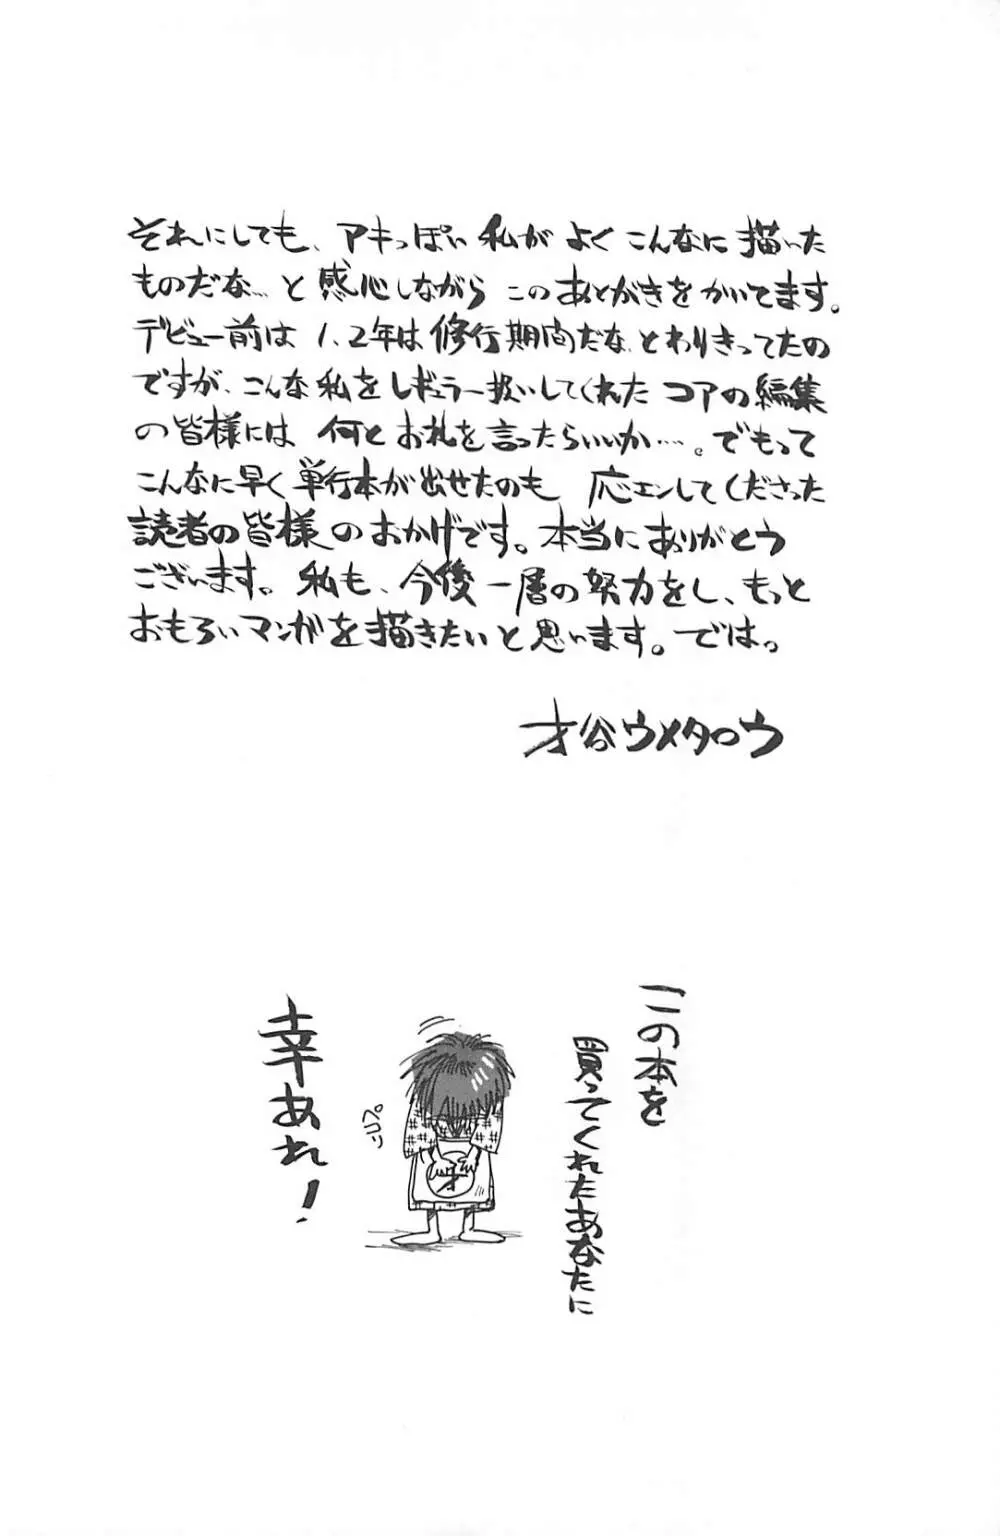 それにしても、アキっぽい私がよくこんなに描いた
ものだな…と感心しながらこのあとがきをかいてます。
デビュー前は1、2年は修行期間だな、とわりきってたの
ですが、こんな私をレギュラー扱いしてくれたコアの編集
の皆様には何とお礼を言ったらいいか……。でもって
こんなに早く単行本が出せたのも応エンしてくださった
読者の皆様のおかげです。本当にありがとう
ございます。私も、今後一層の努力をし、もっと
おもろいマンガを描きたいと思います。では。
才谷ウメタロウ
この本を
買ってくれたあなたに
ペコリ
才
幸あれ!